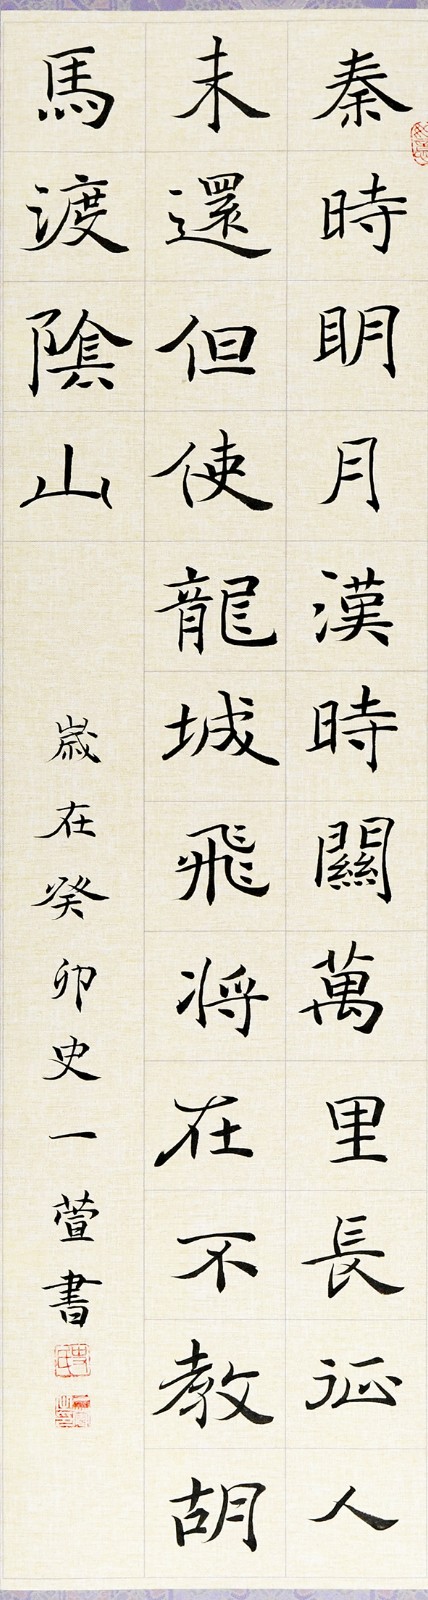 秦時明月漢時關萬里長征人
未還但使龍城飛將在不教胡
馬渡陰山
歲在癸卯史一萱書